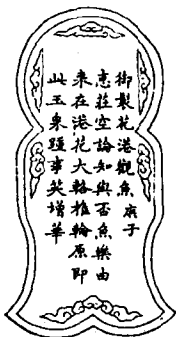 御製花港觀魚 庚子
惠莊空論知與否魚樂由
来在港花大輅椎輪原即
此玉泉踵事英增華